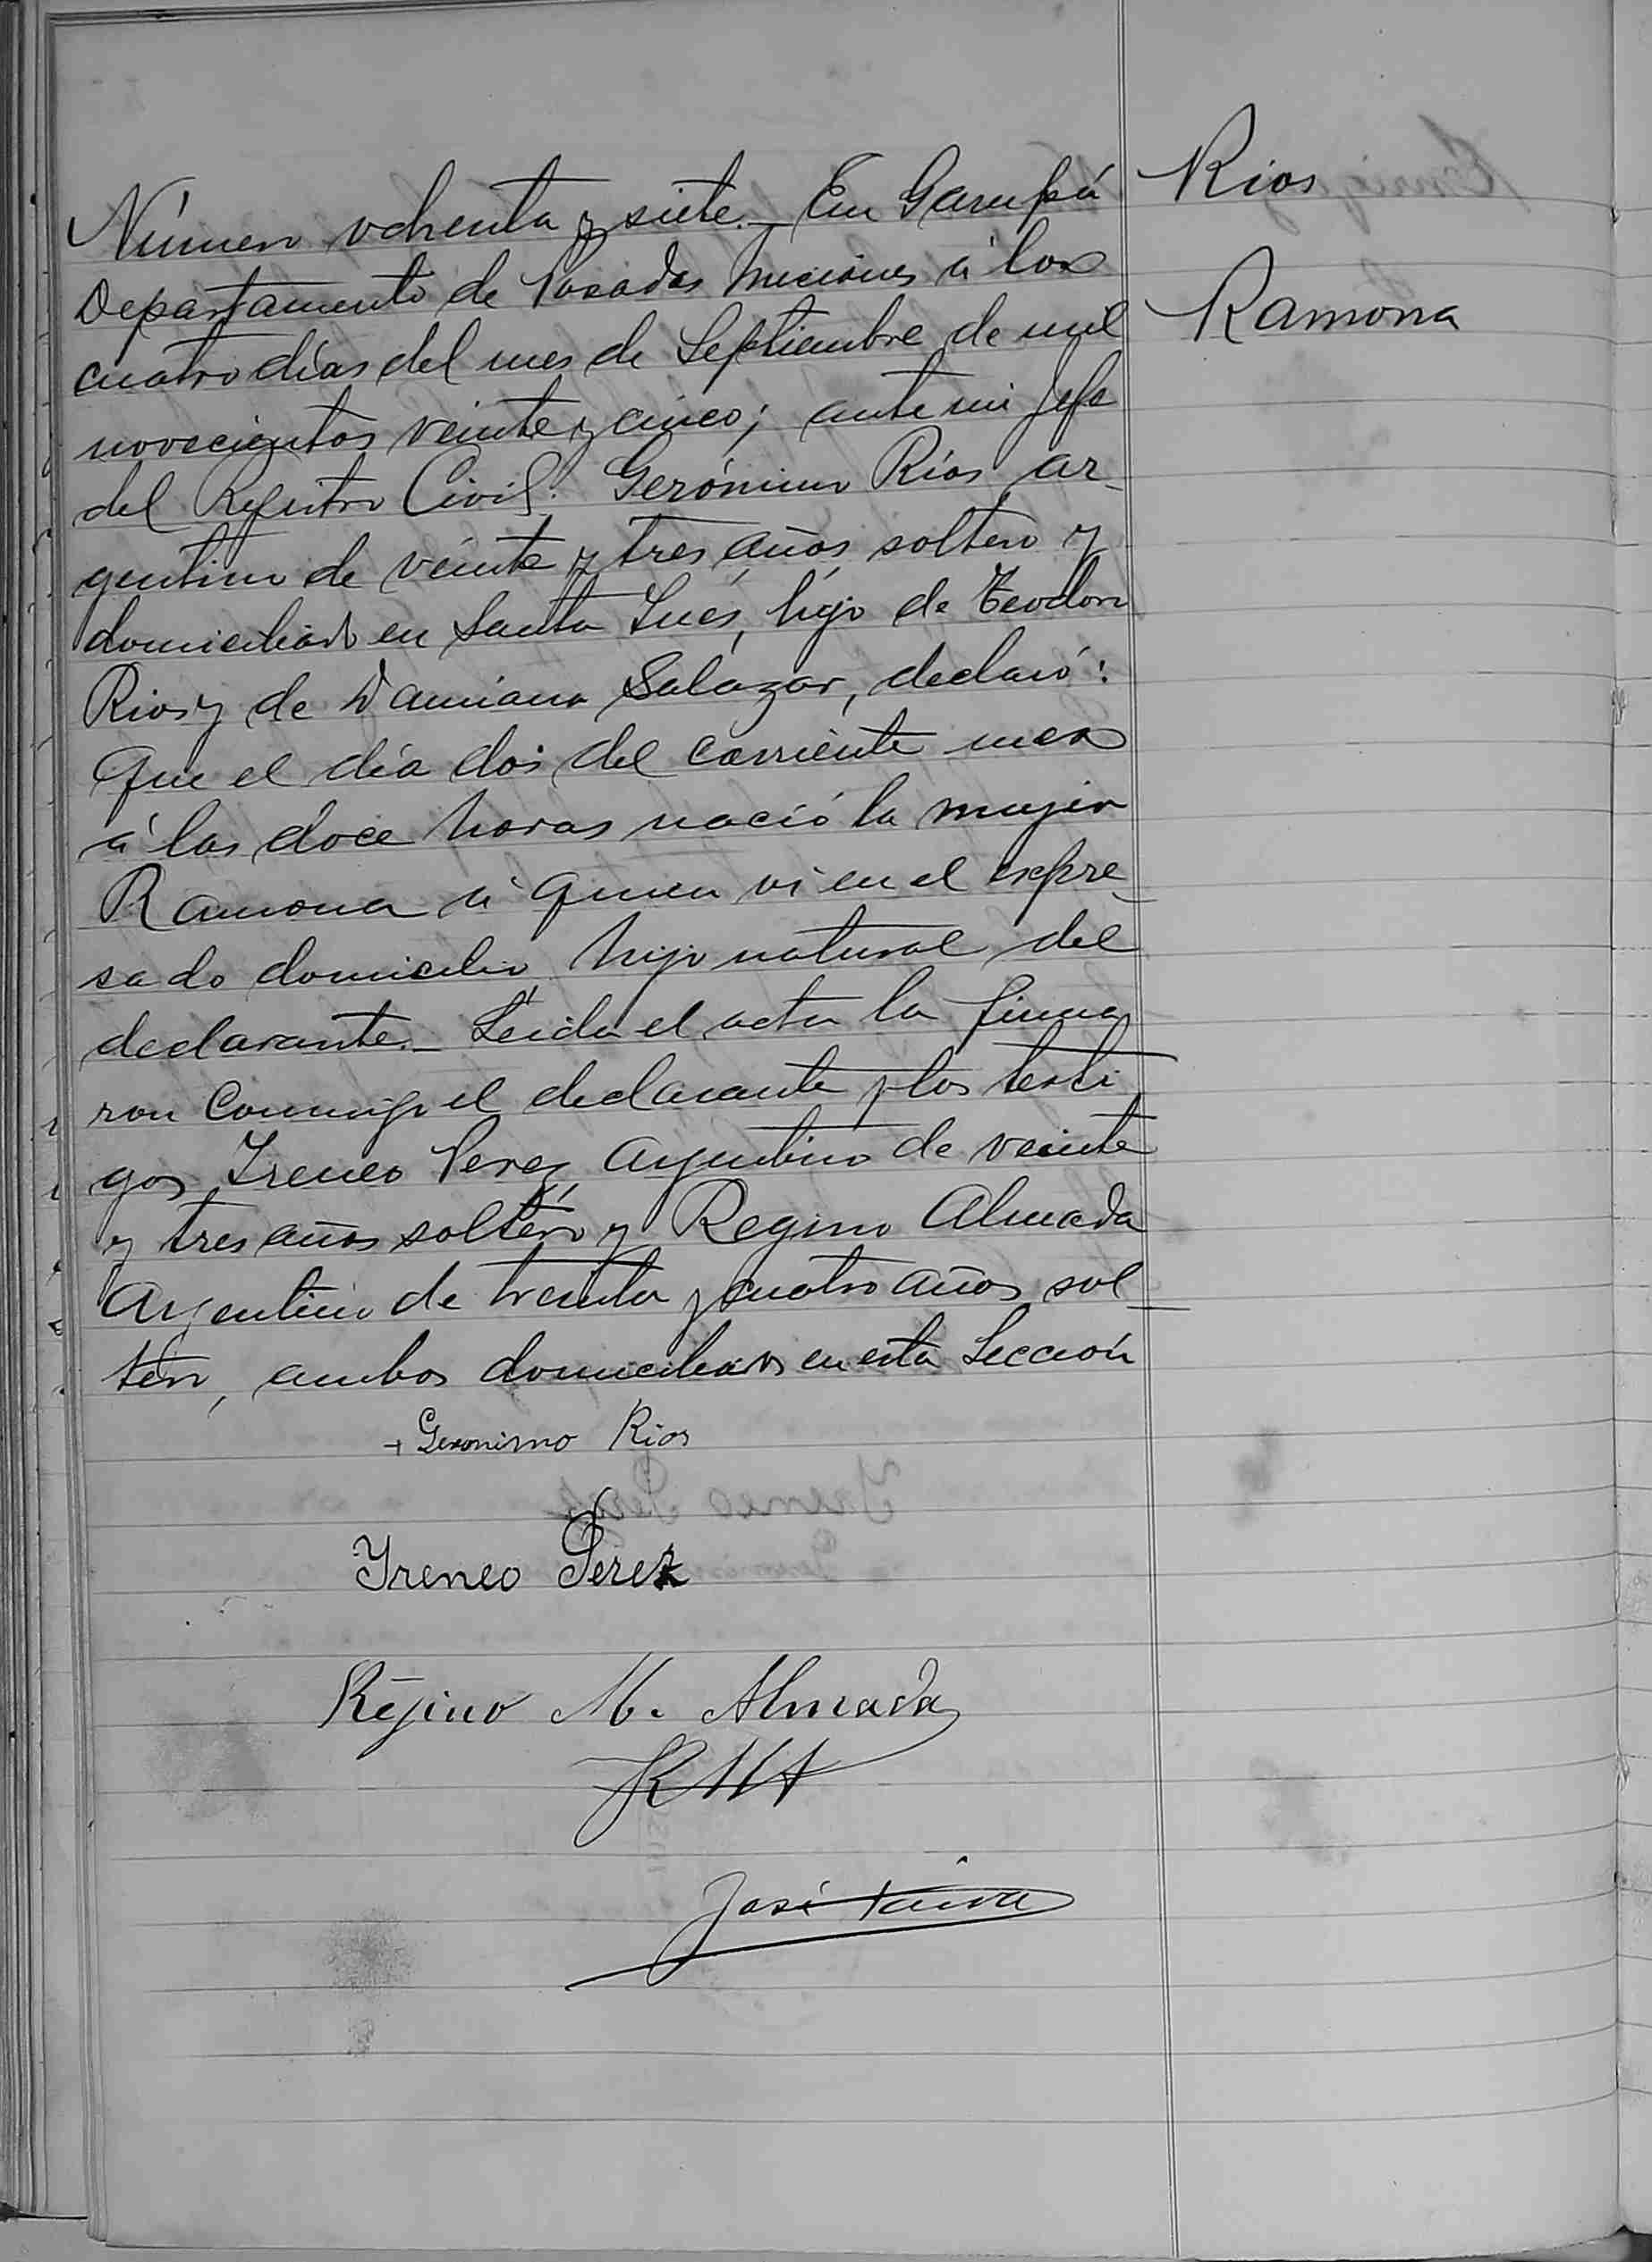 Número ochenta y siete.- En Garupá
Departamento de Posadas Misiones á los
cuatro días del mes de Septiembre de mil
novecientos veinte y cinco; ante mi Jefe
del Registro Civil: Gerónimo Ríos, ar-
gentino de veinte y tres años, soltero y
domiciliado en Santa Inés, hijo de Teodoro
Rios y de Damiana Salazar, declaró:
Que el día dos del corriente mes
á las doce horas nació la mujer
Ramona á quien vi en el expre-
sado domicilio, hijo natural del
declarante.- Leída el acta la firma
ron conmigo el declarante y los testi
gos, Ireneo Perez, argentino de veinte
y tres años soltero y Regino Almada
Argentino de treinta y cuatro años sol-
tero, ambos domiciliados en esta Sección
+ Geronimo Rios
Yreneo Perez
Rejino M. Almada
RMA
José Paiva
Rios
Ramona